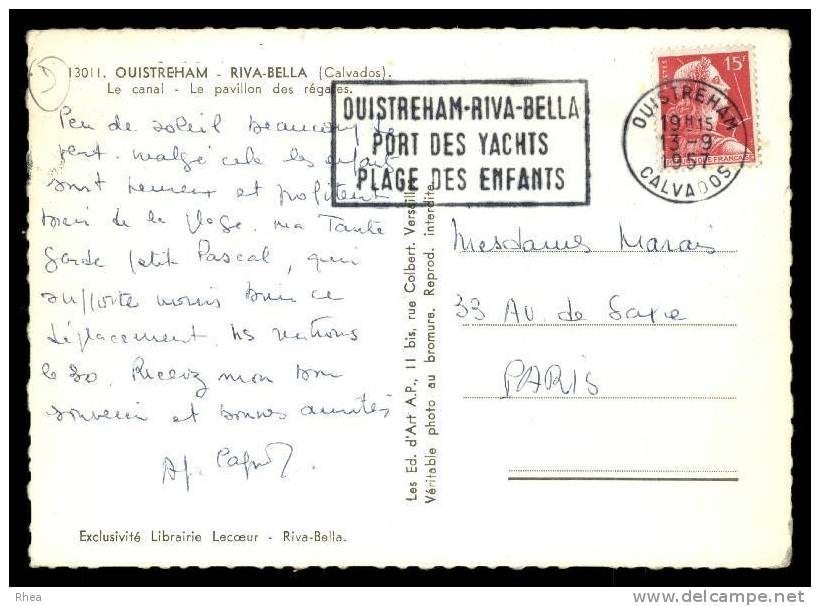 13011. OUISTREHAM - RIVA-BELLA (Calvados).
Le canal - Le pavillon des régates.
Peu de soleil beaucoup de
vent. malgré cela les enfants
sont heureux et profitent
bien de la plage. ma Tante
garde petit Pascal, qui
supporte moins bien ce
déplacement. ns rentrons
le 30. Recevez mon bon
souvenir et bonnes amitiés
OUISTREHAM-RIVA-BELLA
PORT DES YACHTS
PLAGE DES ENFANTS
POSTES
15F
REPUBLIQUE FRANÇAISE
OUISTREHAM
19H15
13-9
1957
CALVADOS
Mesdames Marais
33 Av. de Saxe
PARIS
Les Ed. d'Art A.P., 11 bis, rue Colbert. Versailles
Véritable photo au bromure. Reprod. interdite.
Exclusivité Librairie Lecœur - Riva-Bella.
Rhea
www.delcampe.net